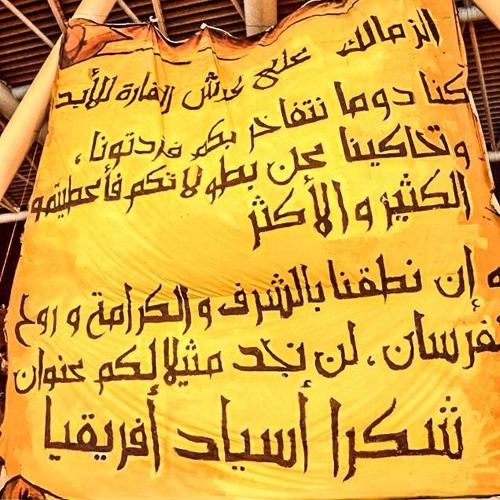 الزمالك على عرش القارة للأبد
كنا دوما نتفاخر بكم فزدتونا ،
وتحاكينا عن بطولاتكم فأعطيتمو
الكثير والأكثر
و إن نطقنا بالشرف والكرامة و روح
لفرسان ، لن نجد مثيلا لكم عنوان
شكرا أسياد أفريقيا